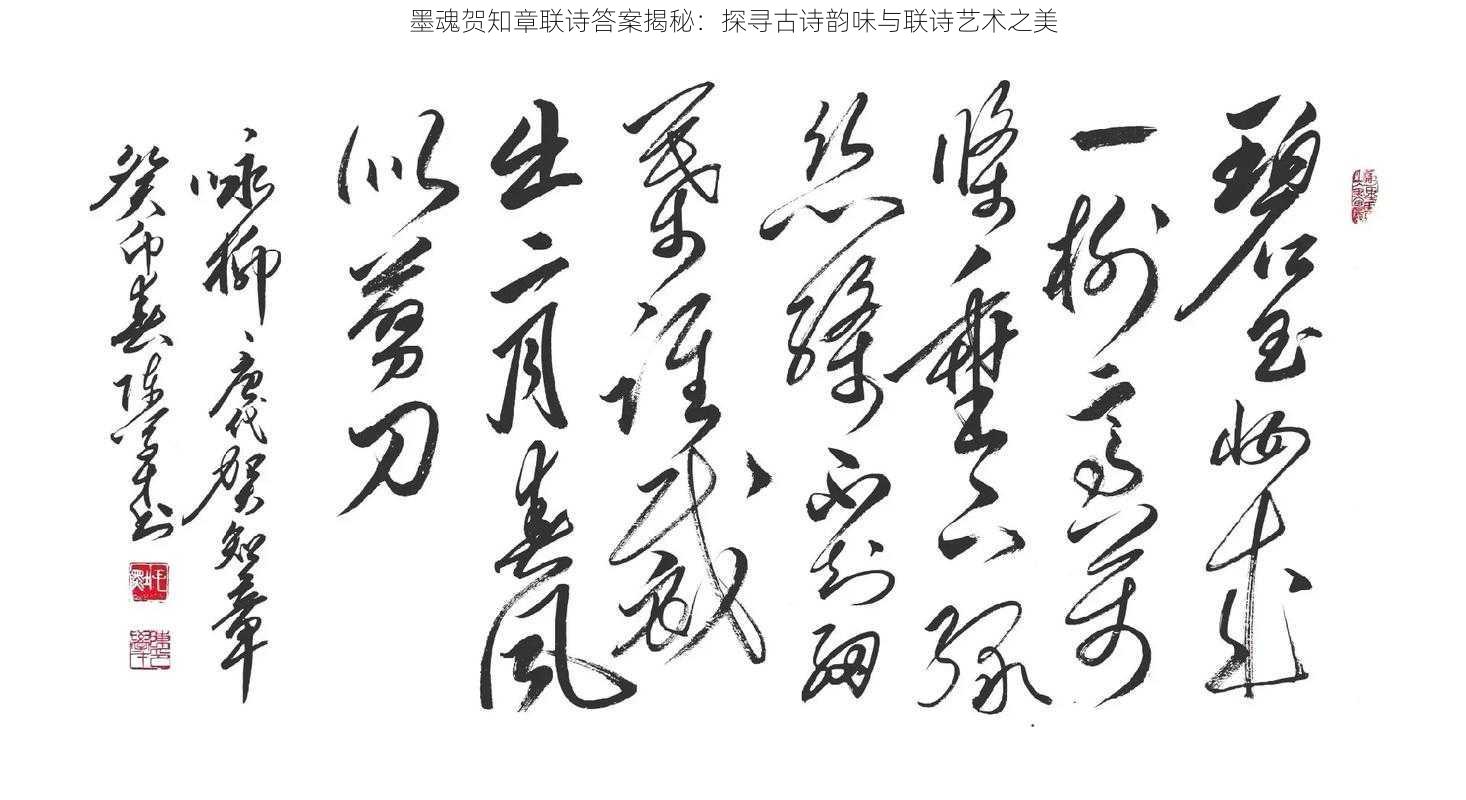 墨魂贺知章联诗答案揭秘：探寻古诗韵味与联诗艺术之美
碧玉妆成
一树高万
條垂下绿
丝絛不知细
葉谁裁
出二月春风
似剪刀
咏柳 唐代贺知章
癸卯春陈书